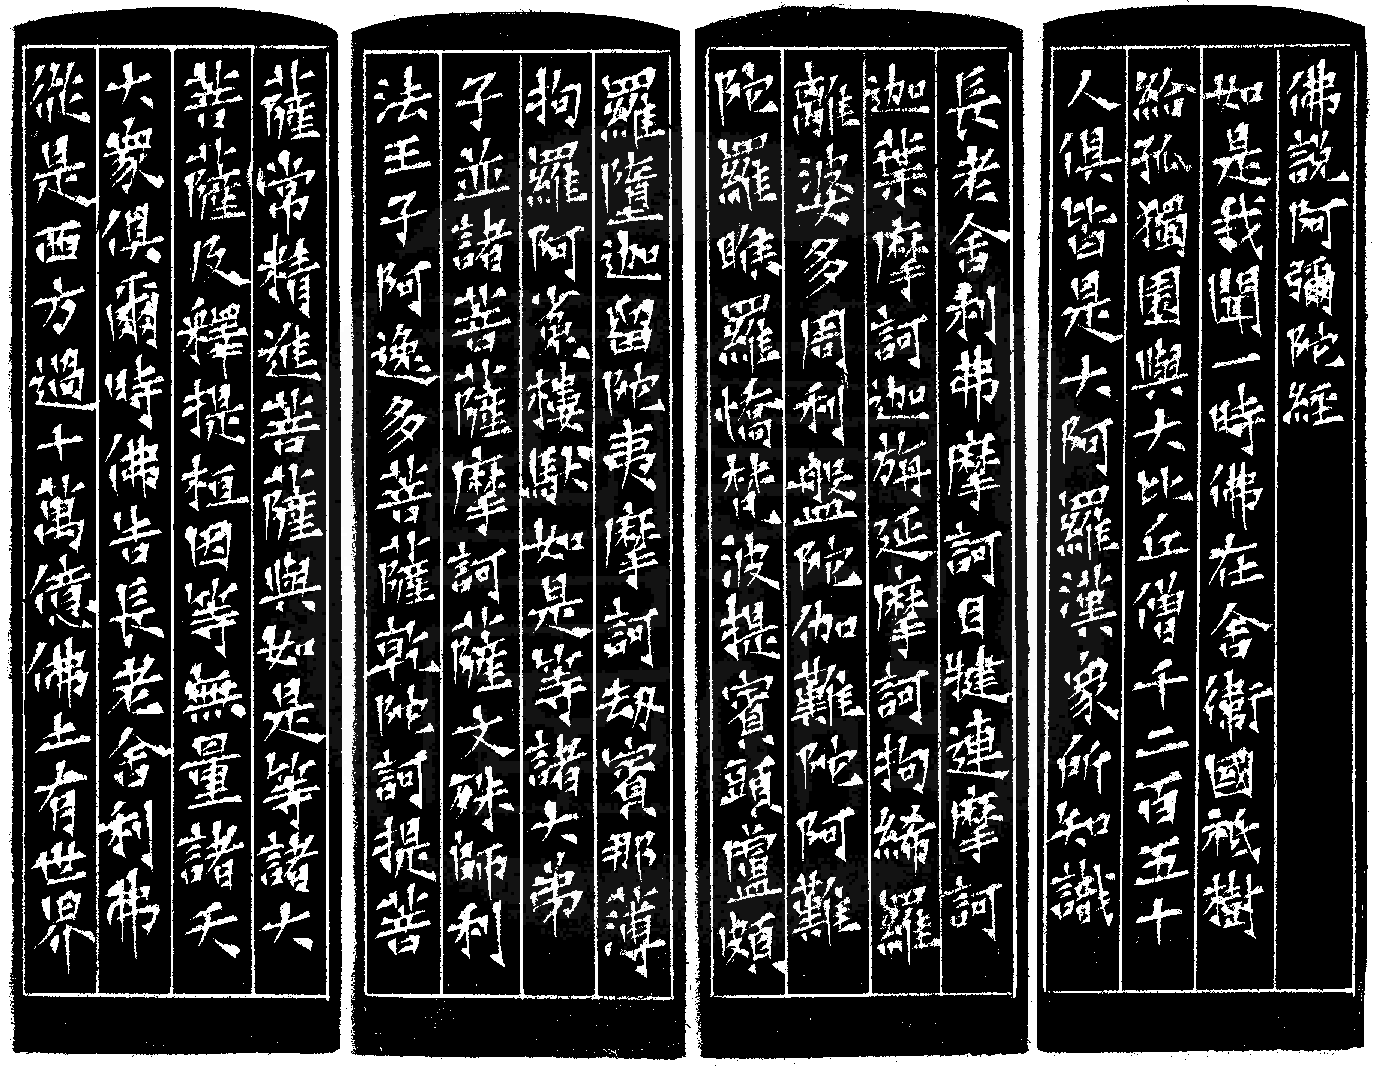 佛説阿彌陀經
如是我聞一時佛在舍衛國祗樹
給孤獨園與大比丘僧千二百五十
人俱皆是大阿羅漢衆所知識
長老舍利弗摩訶目犍連摩訶
迦葉摩訶迦旃延摩訶拘絺羅
離婆多周利盤陀伽難陀阿難
陀羅睺羅憍梵波提賓頭盧頗
羅墮迦留陀夷摩訶劫賓那薄
拘羅阿㝹樓馱如是等諸大弟
子並諸菩薩摩訶薩文殊師利
法王子阿逸多菩薩乾陀訶提菩
薩常精進菩薩與如是等諸大
菩薩及釋提桓因等無量諸天
大衆俱爾時佛告長老舍利弗
從是西方過十萬億佛土有世界